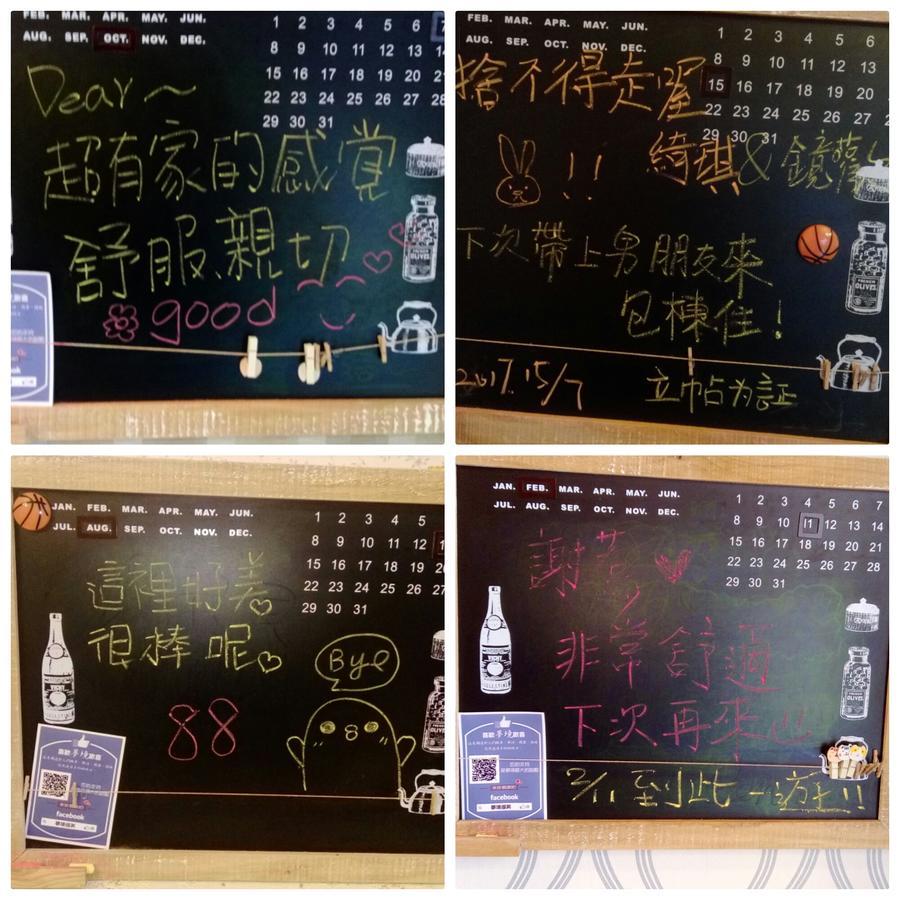 FEB. MAR. APR. MAY. JUN.
AUG. SEP. OCT. NOV. DEC.
1 2 3 4 5 6 7
8 9 10 11 12 13 14
15 16 17 18 19 20 21
22 23 24 25 26 27 28
29 30 31
Dear~
超有家的感覺
舒服親切
good
FRENCH
OLIVES
FEB. MAR. APR. MAY. JUN.
AUG. SEP. OCT. NOV. DEC.
1 2 3 4 5 6
8 9 10 11 12 13
15 16 17 18 19 20
22 23 24 25 26 27 2
29 30 31
捨不得走喔
!! 綺琪&
下次帶上男朋友來
包棟住!
FRENCH
OLIVES
2017.15/7 立帖为証
JAN. FEB. MAR. APR. MAY. JUN.
JUL. AUG. SEP. OCT. NOV. DEC.
1 2 3 4 5
8 9 10 11 12 1
15 16 17 18 19 20
22 23 24 25 26 27
29 30 31
這裡好美
很棒呢
Bye
88
VICHY
喜歡夢境歡喜
facebook
JAN. FEB. MAR. APR. MAY. JUN.
JUL. AUG. SEP. OCT. NOV. DEC.
1 2 3 4 5 6 7
8 9 10 11 12 13 14
15 16 17 18 19 20 21
22 23 24 25 26 27 28
29 30 31
謝苔
非常舒適
下次再來
VICHY
CELESTINS
FRENCH
OLIVES
喜歡夢境歡喜
facebook
2/11到此一遊!!